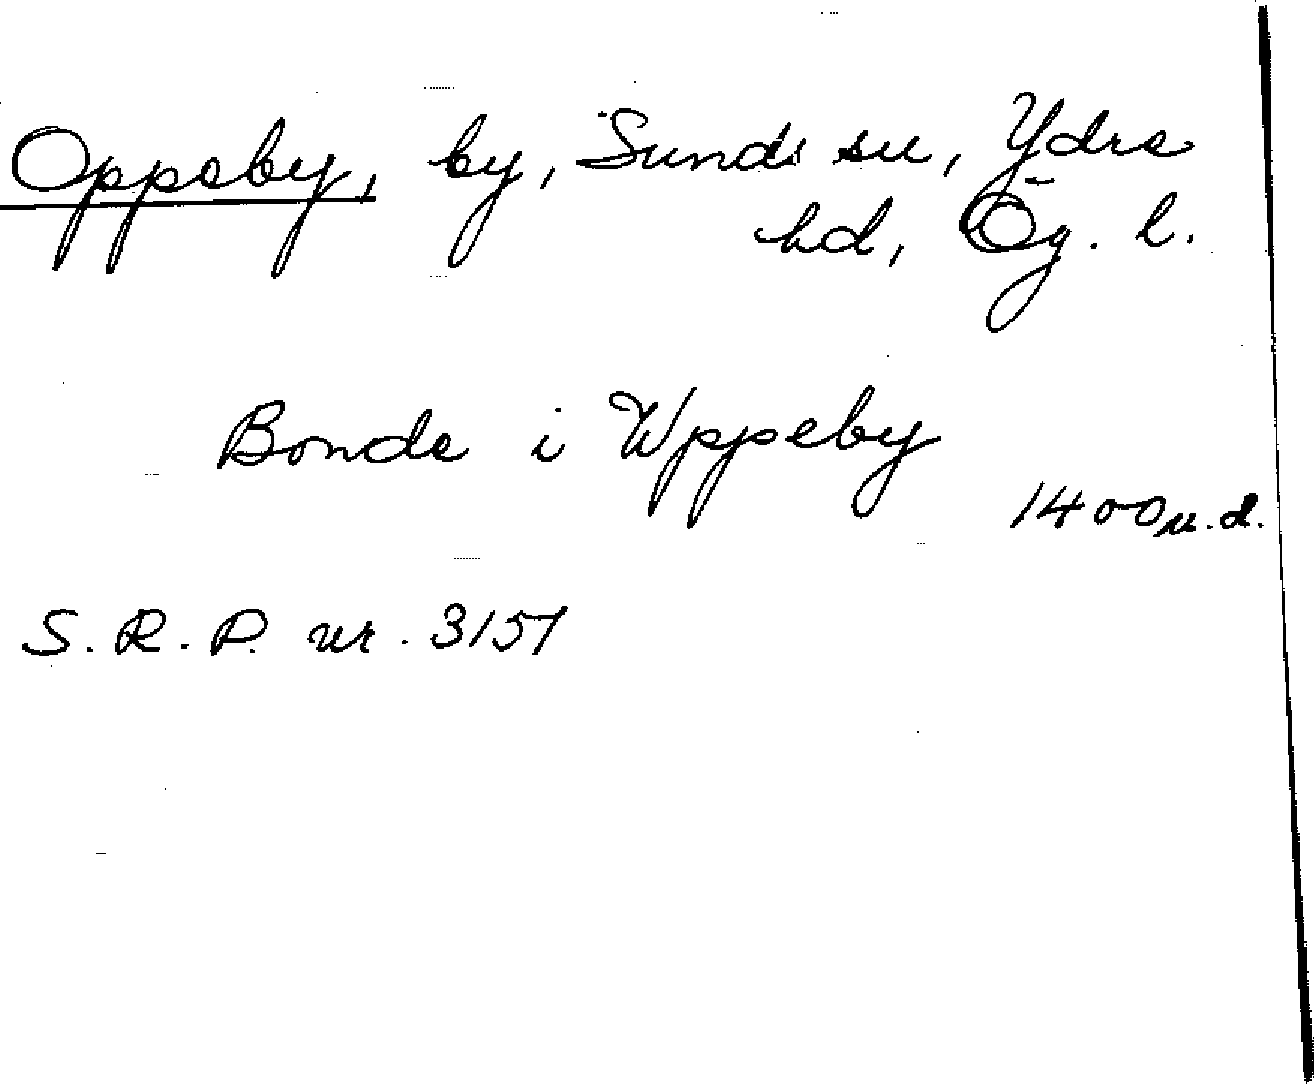 Oppeby, by, Sunds sn, Ydre
hd, Ög. l.
Bonde i Wppeby
1400 u.d.
S.R.P. nr. 3151